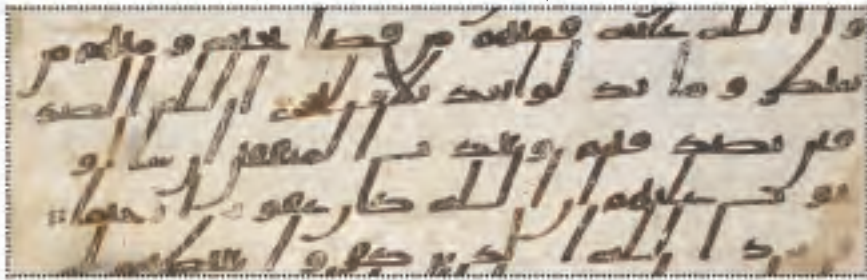 وا الله عليه فمنهم من قضا نحبه و منهم من
ينتظر و ما بدلوا تبديلا ليجزى الله الصد
قين بصدقهم و يعذب المنفقين ان شا او
يتوب عليهم ان الله كان غفورا رحيما
ورد الله الذين كفروا بغيظهم